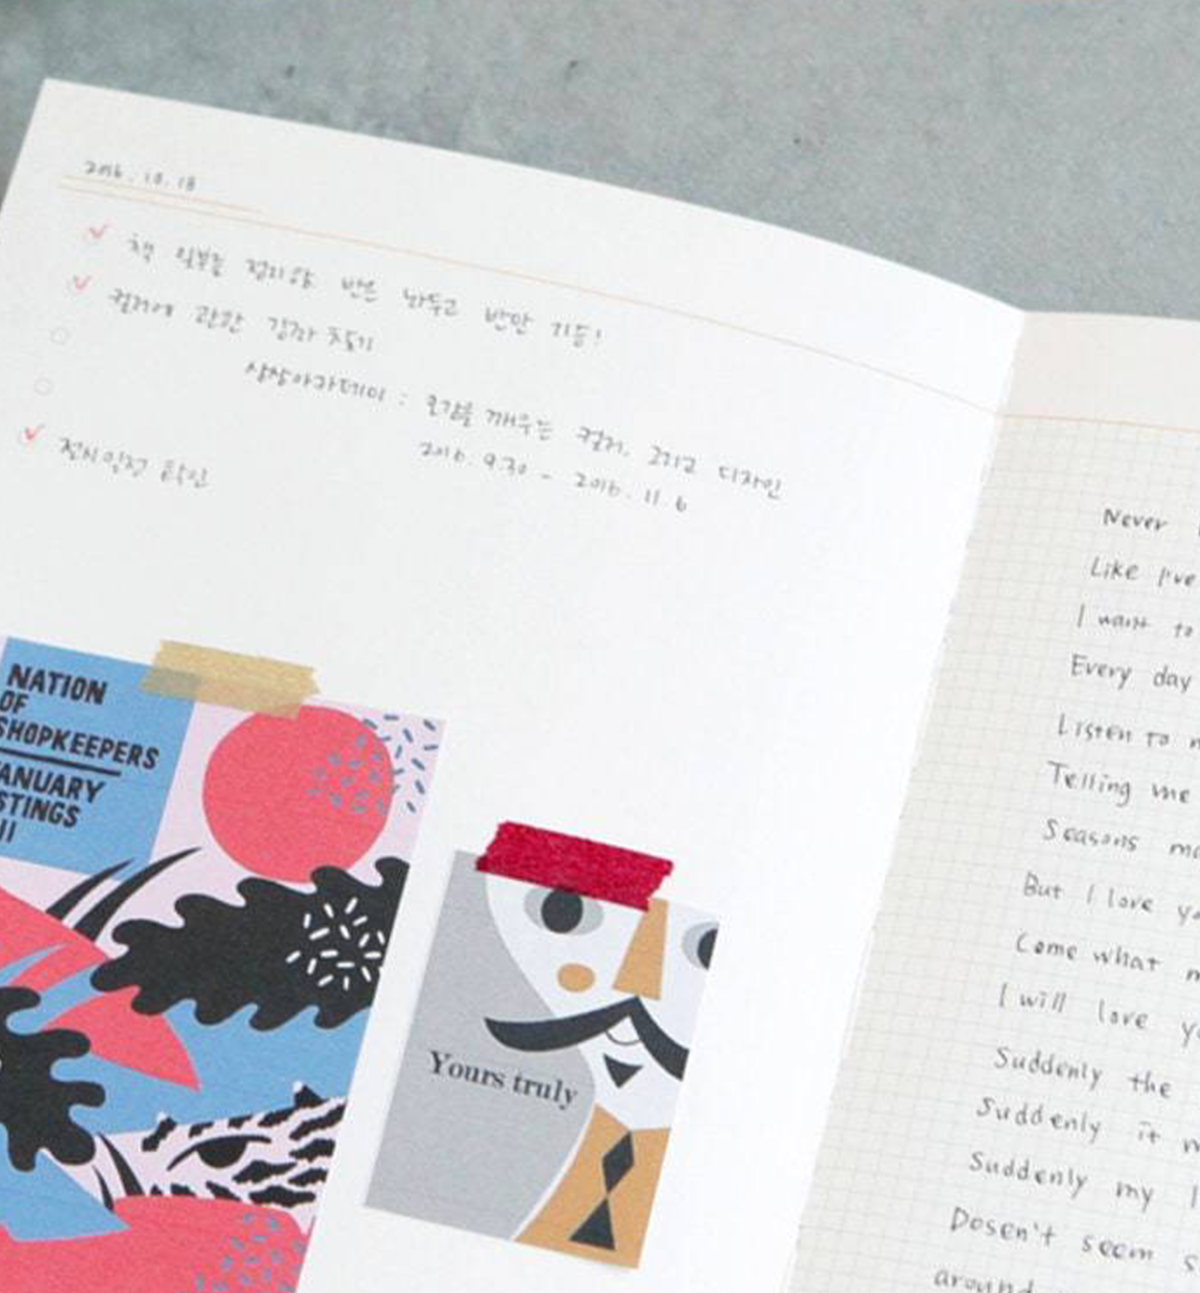 2016. 10. 18
책 일부는 정리함. 반은 놔두고 반만 기증!
컬러에 관한 강좌 듣기
상상아카데미 : 오감을 깨우는 컬러, 그리고 디자인
2016. 9.30 - 2016. 11. 6
전시일정 확인
NATION
OF
SHOPKEEPERS
ANUARY
STINGS
II
Yours truly
Never
Like I've
I want to
Every day
Listen to
Telling me
Seasons
But I love
Come what
I will love
Suddenly the
Suddenly it
Suddenly my
Dosen't seem
around